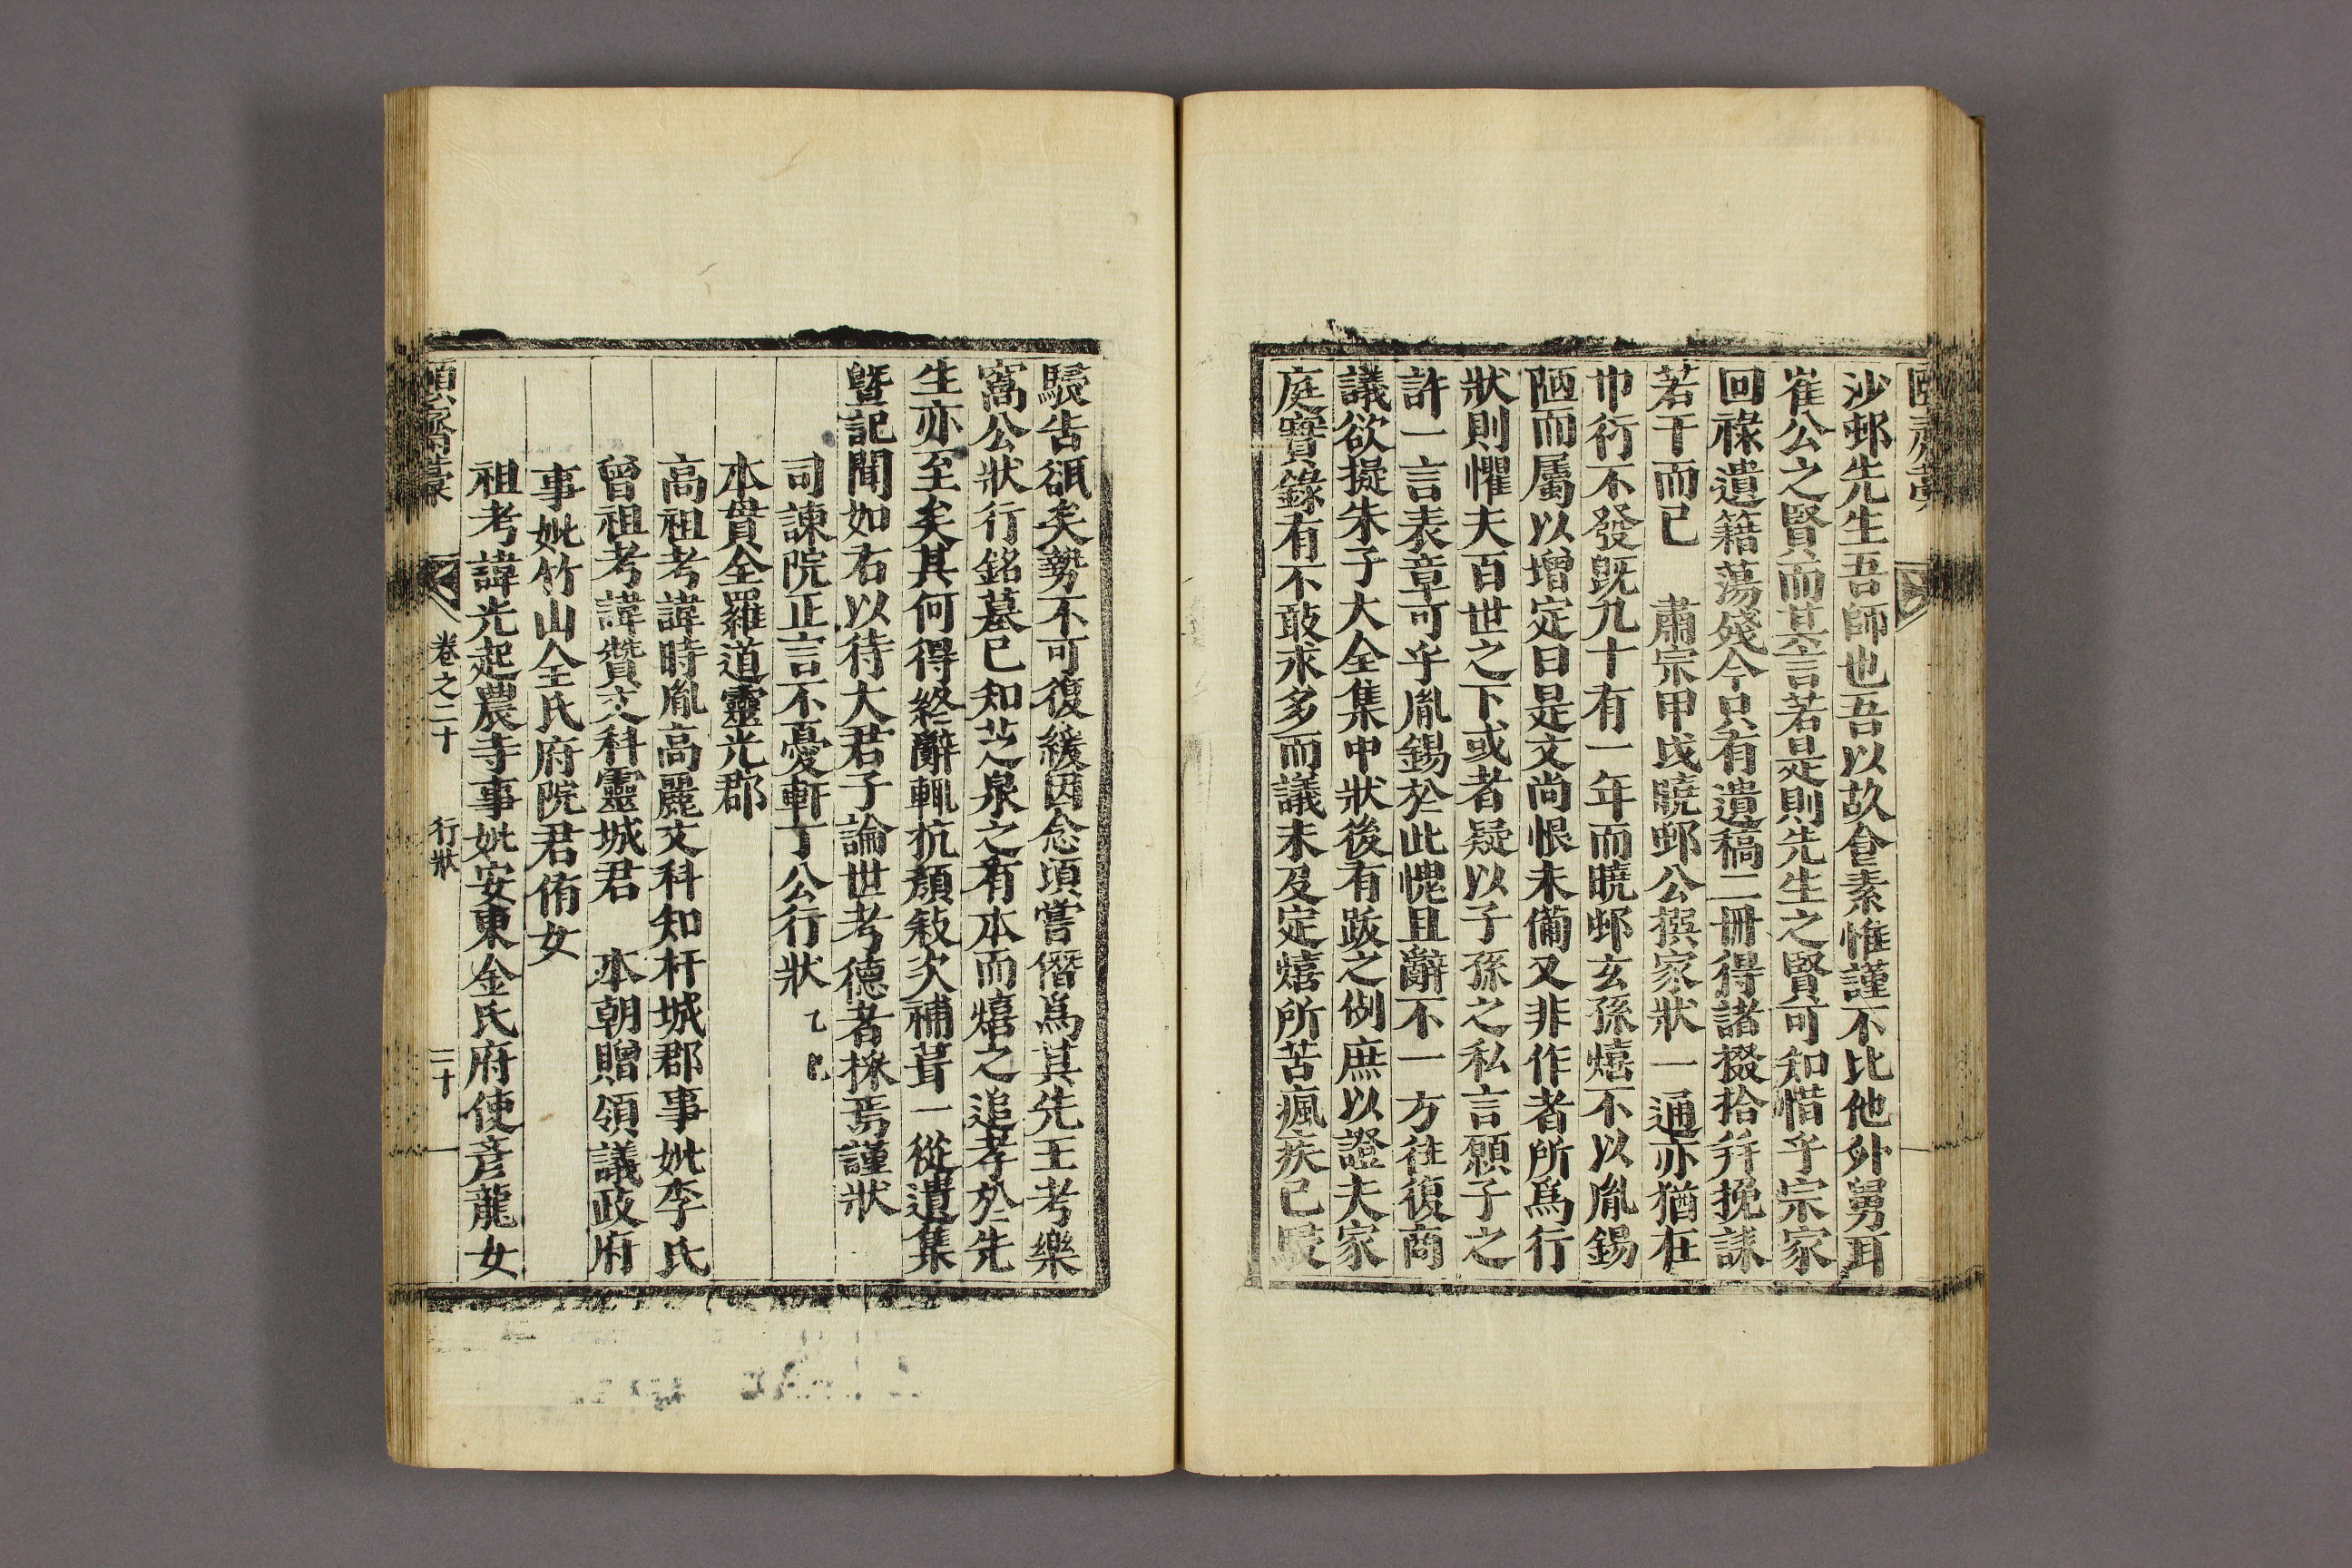 沙邨先生吾師也吾以故倉素惟謹不比他外舅耳
崔公之賢而其言若是則先生之賢可知惜乎宗家
回祿遺籍蕩殘今只有遺稿二冊得諸掇拾幷挽誄
若干而已 肅宗甲戌曉邨公撰家狀一通亦猶在
巾行不發旣九十有一年而曉邨玄孫熺不以胤錫
陋而屬以增定曰是文尚恨未備又非作者所爲行
狀則懼夫百世之下或者疑以子孫之私言願子之
許一言表章可乎胤錫於此愧且辭不一方往復商
議欲擬朱子大全集中狀後有跋之例庶以證夫家
庭實錄有不敢求多而議未及定熺所苦瘋疾已
駸告㱾矣勢不可復緩因念頃嘗僭爲其先王考樂
窩公狀行銘墓已知芝泉之有本而熺之追孝於先
生亦至矣其何得終辭輒抗顏敍次補葺一從遺集
曁記聞如右以待大君子論世考德者採焉謹狀
司諫院正言不憂軒丁公行狀 乙巳
本貫全羅道靈光郡
高祖考諱時胤高麗文科知杆城郡事妣李氏
曾祖考諱贊文科靈城君 本朝贈領議政府
事妣竹山全氏府院君侑女
祖考諱光起農寺事妣安東金氏府使彥龍女
頤齋藁 卷之二十 行狀 二十